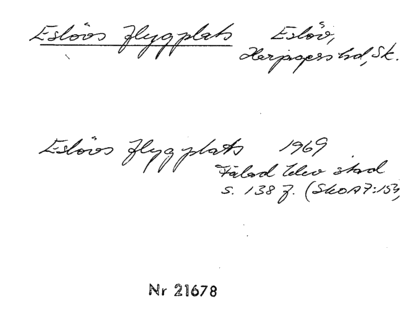 Eslövs flygplats Eslöv,
Harjagers hd, Sk.
Eslövs flygplats 1969
Fälad blev stad
s. 138 f. (SkOA7:159)
Nr 21678